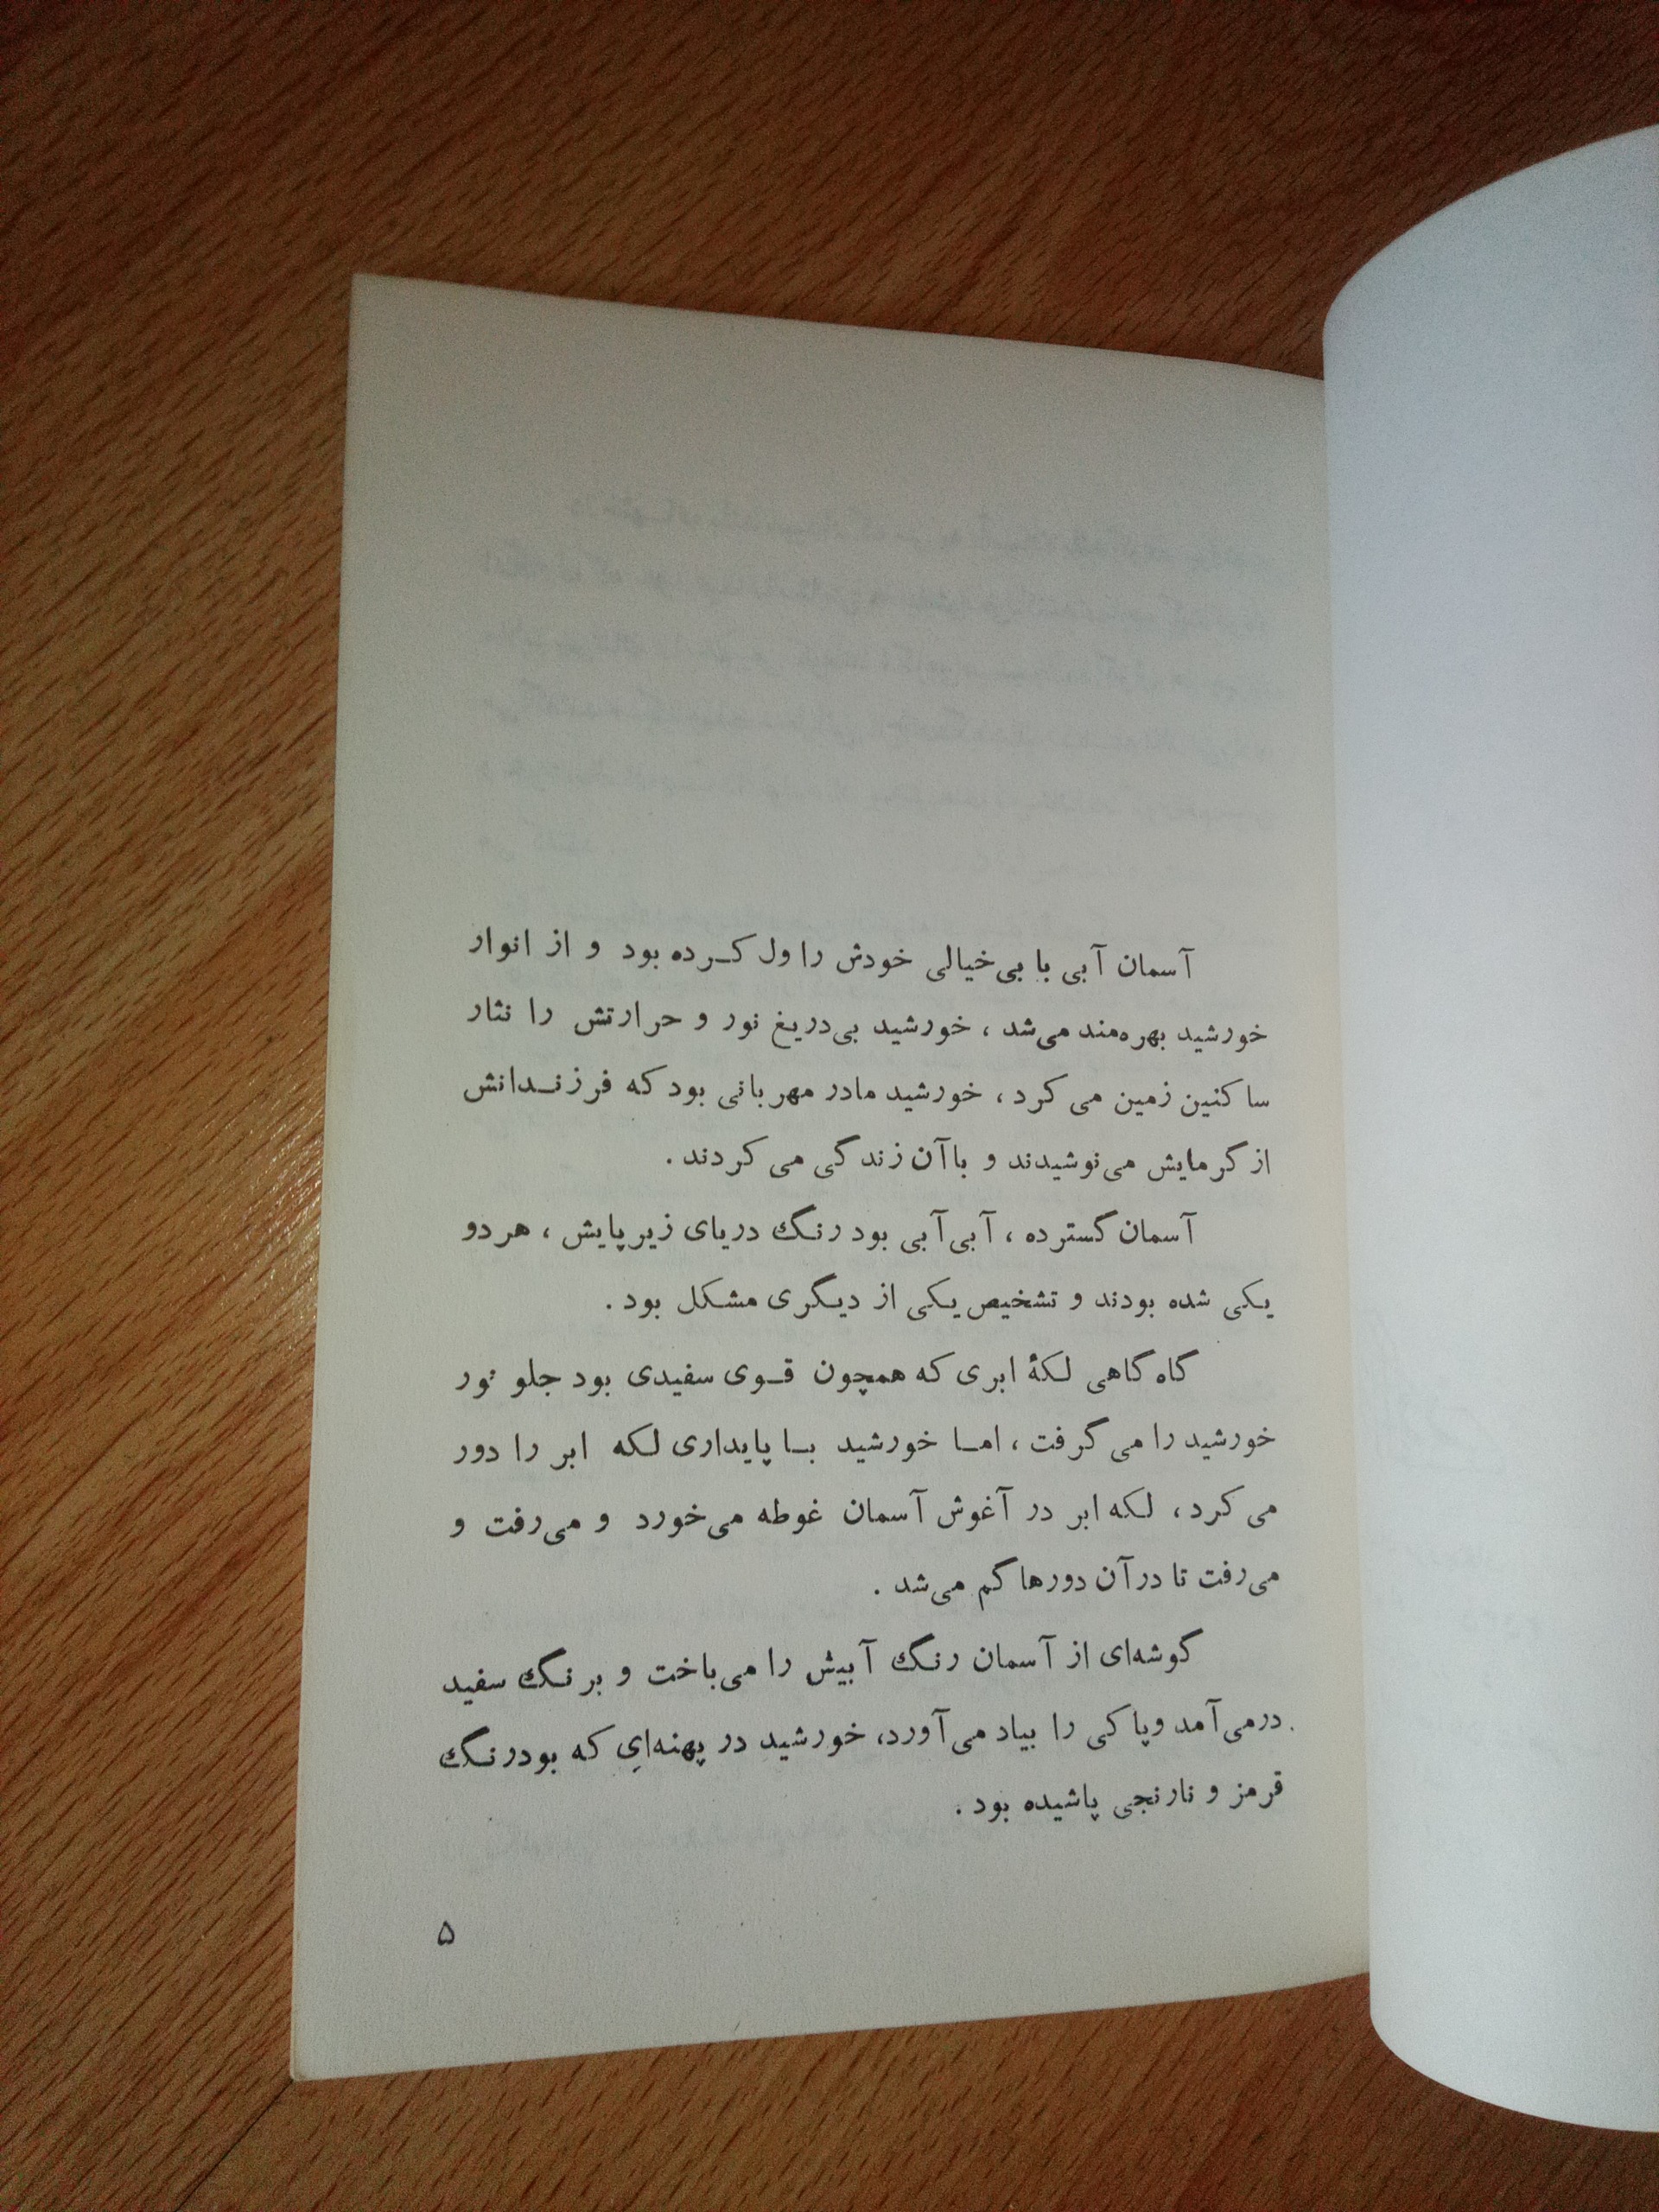 آسمان آبی با بی‌خیالی خودش را ول کـرده بود و از انوار
خورشید بهره‌مند می‌شد ، خورشید بی‌دریغ نور و حرارتش را نثار
ساکنین زمین می‌کرد ، خورشید مادر مهربانی بود که فرزنـدانش
از گرمایش می‌نوشیدند و با آن زندگی می‌کردند .
آسمان گسترده ، آبی‌آبی بود رنگ دریای زیر پایش ، هر دو
یکی شده بودند و تشخیص یکی از دیگری مشکل بود .
گاه گاهی لکهٔ ابری که همچون قـوی سفیدی بود جلو نور
خورشید را می‌گرفت ، امـا خورشید بـا پایداری لکه ابر را دور
می‌کرد ، لکه ابر در آغوش آسمان غوطه می‌خورد و می‌رفت و
می‌رفت تا در آن دورها گم می‌شد .
گوشه‌ای از آسمان رنگ آبیش را می‌باخت و برنگ سفید
درمی‌آمد و پاکی را بیاد می‌آورد، خورشید در پهنه‌ای که بود رنگ
قرمز و نارنجی پاشیده بود .
۵